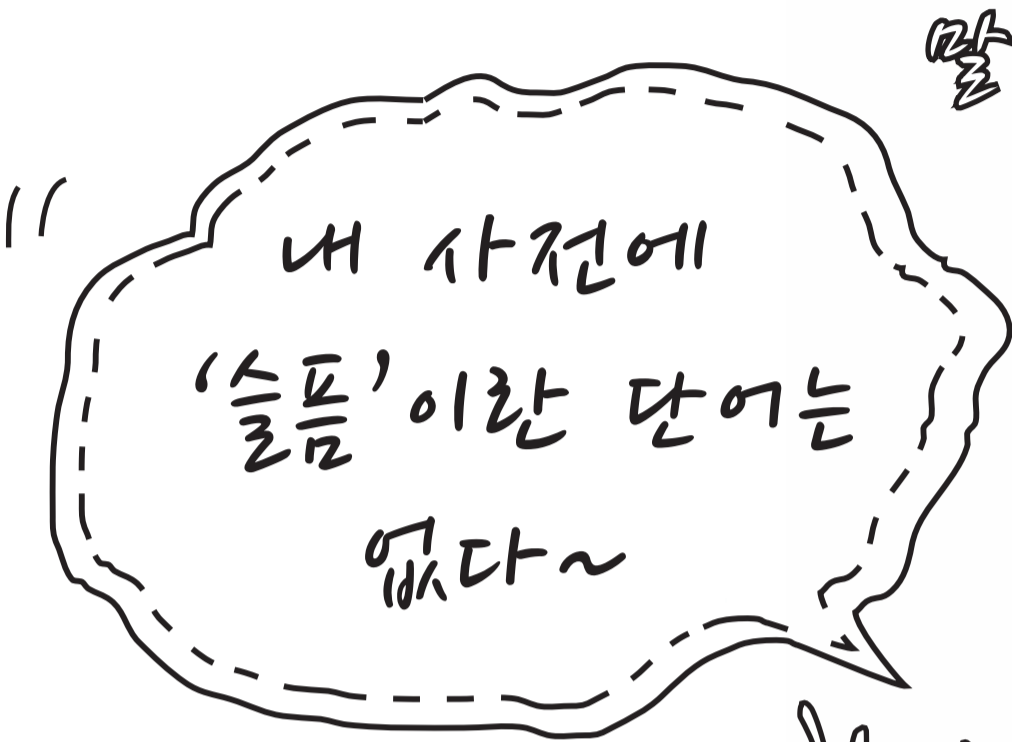 내 사전에
'슬픔'이란 단어는
없다~